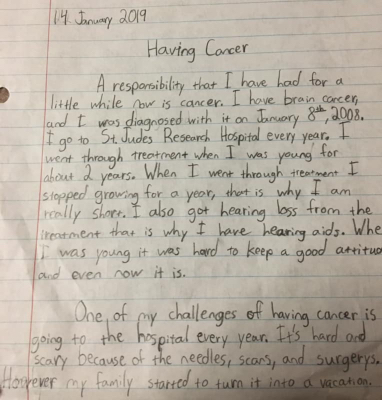 14 January 2019
Having Cancer
A responsibility that I have had for a
little while now is cancer. I have brain cancer,
and I was diagnosed with it on January 8th, 2008.
I go to St. Judes Research Hospital every year. I
went through treatment when I was young for
about 2 years. When I went through treatment I
stopped growing for a year, that is why I am
really short. I also got hearing loss from the
treatment that is why I have hearing aids. Whe
I was young it was hard to keep a good attitud
and even now it is.
One of my challenges of having cancer is
going to the hospital every year. It's hard and
scary because of the needles, scans, and surgerys.
However my family started to turn it into a vacation.